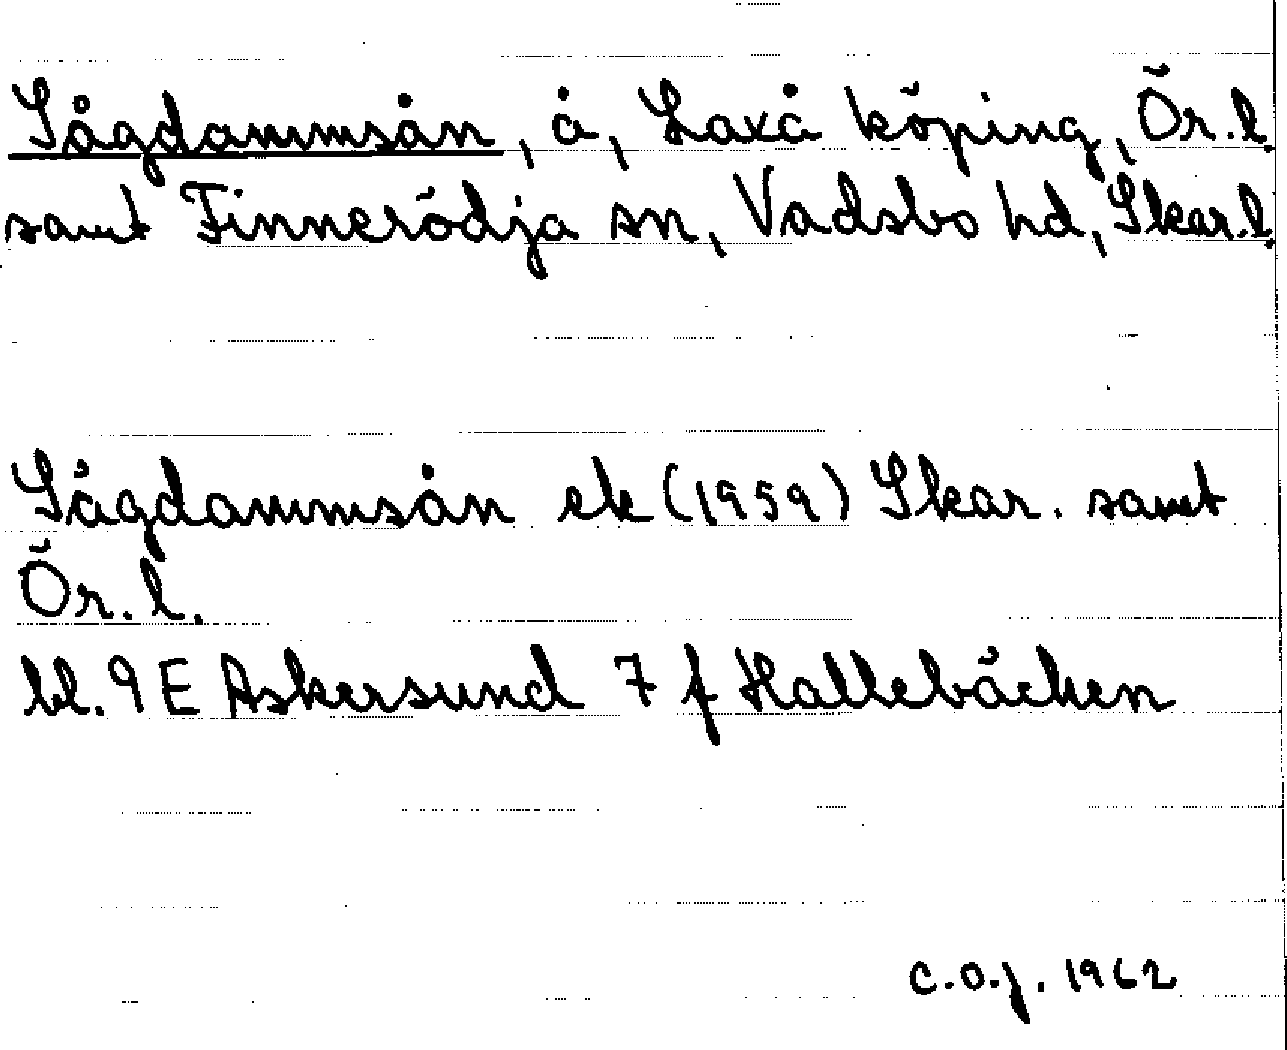 Sågdammsån, å, Laxå köping, Ör.l.
samt Finnerödja sn, Vadsbo hd, Skar.l.
Sågdammsån ek (1959) Skar. samt
Ör.l.
bl. 9 E Askersund 7 f Hallebäcken
C.O.J. 1962